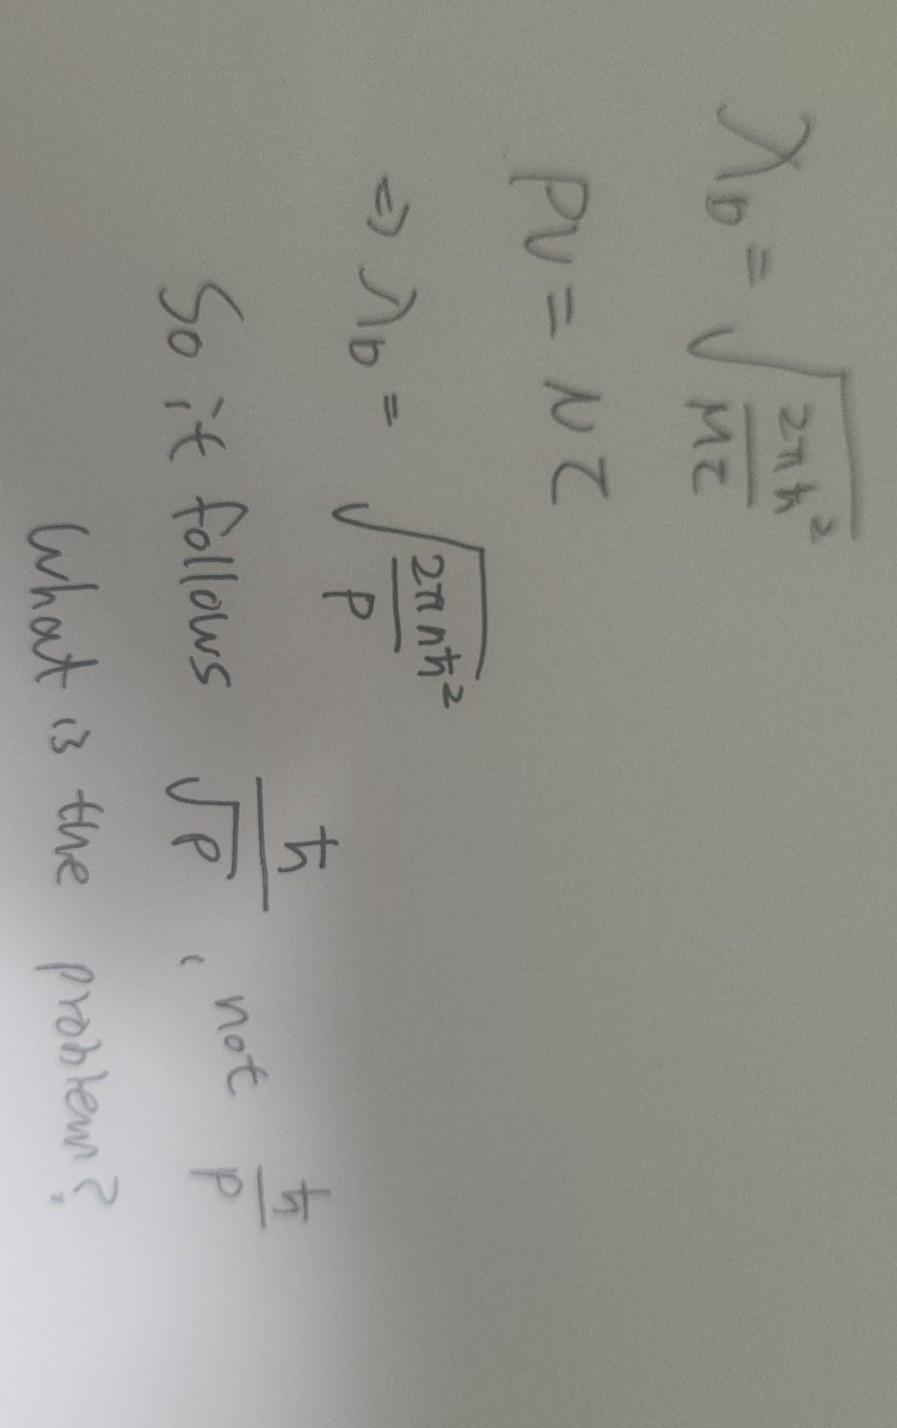 λ_D = √(2πħ²/Mτ)
PV = Nτ
⇒ λ_D = √(2πnħ²/P)
So it follows ħ/√P, not ħ/P
What is the problem?